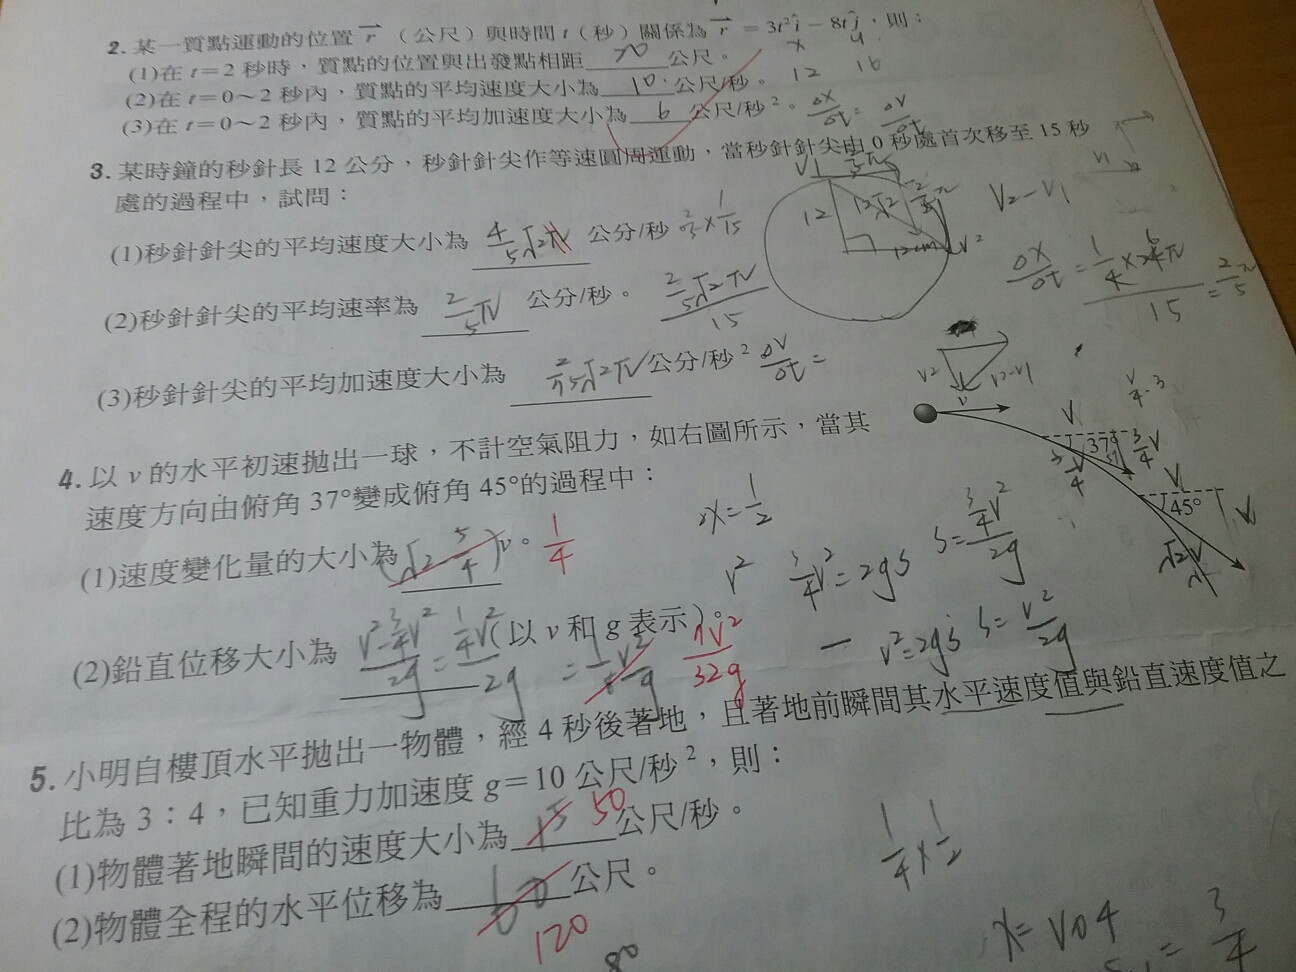 2. 某一質點運動的位置 r （公尺）與時間 t（秒）關係為 r = 3t²i − 8tj，則：
(1)在 t＝2 秒時，質點的位置與出發點相距 20 公尺。 x y
(2)在 t＝0～2 秒內，質點的平均速度大小為 10 公尺/秒。 12 16
(3)在 t＝0～2 秒內，質點的平均加速度大小為 6 公尺/秒²。 Δx/Δt = ΔV/Δt
3. 某時鐘的秒針長 12 公分，秒針針尖作等速圓周運動，當秒針針尖由 0 秒處首次移至 15 秒
處的過程中，試問：
V1
12 12√2 12cm V2
V2−V1
(1)秒針針尖的平均速度大小為 4/5√2 公分/秒
Δx/Δt = 1/4×24π/15 = 2/5π
(2)秒針針尖的平均速率為 2/5π 公分/秒。 2/5√2π/15
(3)秒針針尖的平均加速度大小為 2/75√2π 公分/秒² ΔV/Δt =
V2 V2−V1
4. 以 v 的水平初速拋出一球，不計空氣阻力，如右圖所示，當其
速度方向由俯角 37°變成俯角 45°的過程中：
v
V 37° 3/4V
V 45° V
√2V
(1)速度變化量的大小為 (√2 5/4) v。 1/4
V² 3/4V²=2gS S=3/4V²/2g
(2)鉛直位移大小為 V²−3/4V²/2g = 1/4V²/2g (以 v 和 g 表示)。 = 1/8 V²/g 7V²/32g
− V²=2gS S=V²/2g
5. 小明自樓頂水平拋出一物體，經 4 秒後著地，且著地前瞬間其水平速度值與鉛直速度值之
比為 3：4，已知重力加速度 g＝10 公尺/秒²，則：
(1)物體著地瞬間的速度大小為 50 公尺/秒。
1/4×1/2
(2)物體全程的水平位移為 公尺。
120
80
x=V0 4
3/4